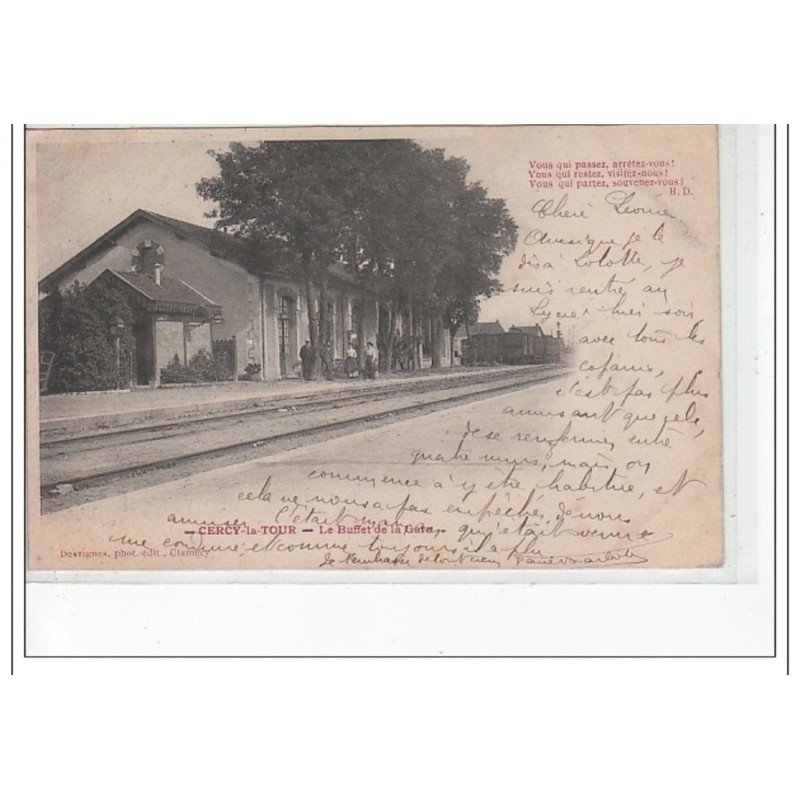 Vous qui passez, arrêtez-vous!
Vous qui restez, visitez-nous!
Vous qui partez, souvenez-vous!
H. D.
Cherè Leonie
Ainsique je le
dis à Lolotte, je
suis rentré au
Lycee hier soir
avec tous les
copains,
c'est pas plus
amusant que cela,
de se renfermer entre
quatre murs, mais on
commence à y être habitué, et
cela ne nous a pas empêché, de nous
amuser C'était qu'était venue
— CERCY-la-TOUR — Le Buffet de la Gare
et comme toujours il a plu
Je t'embrasse de tout cœur
Desvignes, phot.-édit., Clamecy